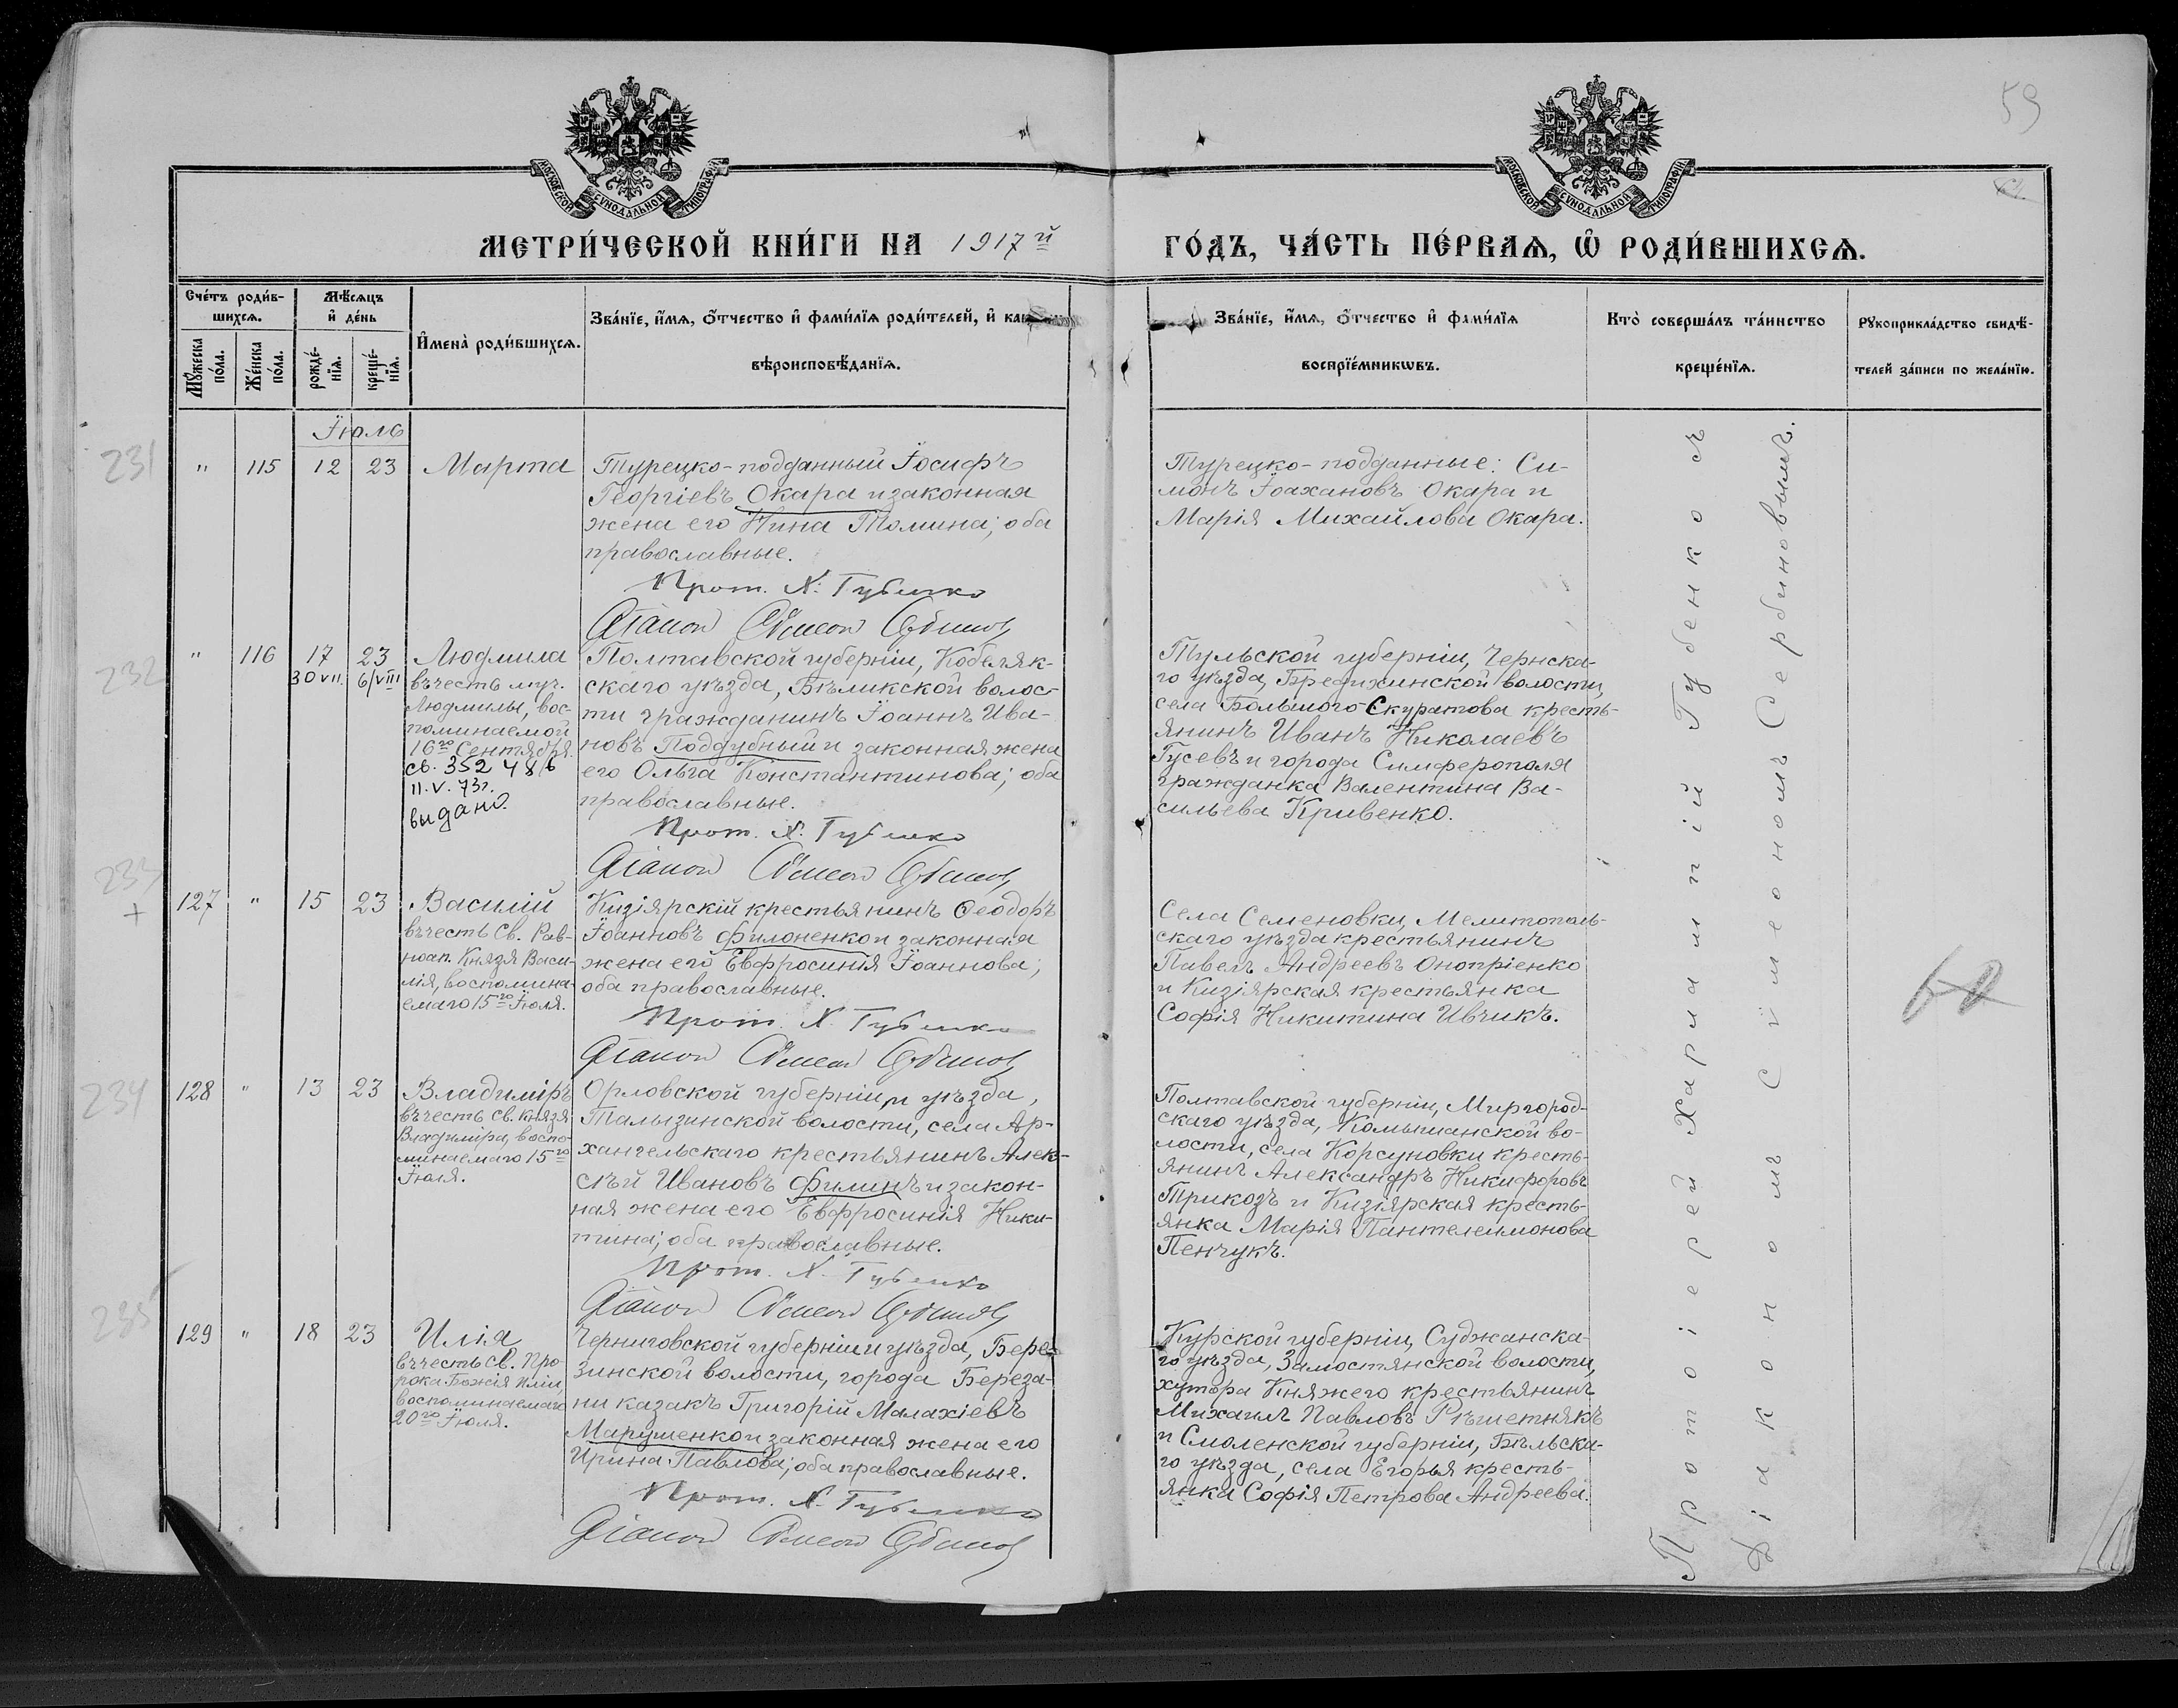 59
МОСКОВСКОЙ СѴНОДАЛЬНОЙ ТИПОГРАФІИ
МОСКОВСКОЙ СѴНОДАЛЬНОЙ ТИПОГРАФІИ
МЕТРИ́ЧЕСКОЙ КНИ́ГИ НА 1917й ГО́ДЪ, ЧА́СТЬ ПЕ́РВАѦ, Ѡ҆ РОДИ́ВШИХСѦ.
Сче́тъ роди́в-
шихсѧ.
Мꙋ́жеска
по́ла.
Же́нска
по́ла.
Мѣ́сѧцъ
и҆ де́нь
рожде́-
нїѧ.
креще́-
нїѧ.
И҆мена̀ роди́вшихсѧ.
Зва́нїе, и҆́мѧ, ѻ҆́тчество и҆ фами́лїѧ роди́телей, и҆
вѣроисповѣ́данїѧ.
Зва́нїе, и҆́мѧ, ѻ҆́тчество и҆ фами́лїѧ
воспрїе́мникѡвъ.
Кто̀ соверша́лъ та́инство
креще́нїѧ.
Рꙋкоприкла́дство свидѣ́-
телей за́писи по жела́нїю.
Їюль
231
" 115 12 23 Марта
Турецко-подданный Їосифъ
Георгіевъ Окара и законная
жена его Нина Томина; оба
православные.
Прот. Х. Губенко
Діаконъ Сѵмеонъ Сербиновъ
Турецко-подданные: Си-
монъ Їоахановъ Окара и
Марія Михайлова Окара.
232
" 116 17 23 Людмила
30 VII. 6/VIII
въ честь муч.
Людмилы, вос-
поминаемой
16го Сентября.
св. 352 48/6
11.V.73г.
выдано.
Полтавской губерніи, Кобеляк-
скаго уѣзда, Бѣликской волос-
ти гражданинъ Їоаннъ Ива-
новъ Поддубный и законная жена
его Ольга Константинова; оба
православные.
Прот. Х. Губенко
Діаконъ Сѵмеонъ Сербиновъ
Тульской губерніи, Чернска-
го уѣзда, Бредихинской волости,
села Большого-Скуратова кресть-
янинъ Иванъ Николаевъ
Гусевъ и города Симферополя
гражданка Валентина Ва-
сильева Кривенко.
233
+
127 " 15 23 Василій
въ честь Св. Рав-
ноап. Князя Васи-
лія, воспомина-
емаго 15го Їюля.
Кизіярскій крестьянинъ Ѳеодоръ
Їоанновъ Филоненко и законная
жена его Евфросинія Їоаннова;
оба православные.
Прот. Х. Губенко
Діаконъ Сѵмеонъ Сербиновъ
Села Семеновки, Мелитополь-
скаго уѣзда крестьянинъ
Павелъ Андреевъ Оноприенко
и Кизіярская крестьянка
Софія Никитина Ивчикъ.
234
128 " 13 23 Владиміръ
въ честь св. князя
Владиміра, воспо-
минаемаго 15го
Їюля.
Орловской губерніи и уѣзда,
Талызинской волости, села Ар-
хангельскаго крестьянинъ Алек-
сѣй Ивановъ Филинъ и закон-
ная жена его Евфросинія Ники-
тина; оба православные.
Прот. Х. Губенко
Діаконъ Сѵмеонъ Сербиновъ
Полтавской губерніи, Миргород-
скаго уѣзда, Комышанской во-
лости, села Корсуновки кресть-
янинъ Александръ Никифоровъ
Трикозъ и Кизіярская кресть-
янка Марія Пантелеимонова
Пенчукъ.
235
129 " 18 23 Илія
въ честь св. Про-
рока Божія Иліи,
воспоминаемаго
20го Їюля.
Черниговской губерніи и уѣзда, Бере-
зинской волости, города Береза-
ни казакъ Григорій Малахіевъ
Марушенко и законная жена его
Ирина Павлова; оба православные.
Прот. Х. Губенко
Діаконъ Сѵмеонъ Сербиновъ
Курской губерніи, Суджанска-
го уѣзда, Замостянской волости,
хутора Княжего крестьянинъ
Михаилъ Павловъ Рѣшетнякъ
и Смоленской губерніи, Бѣльска-
го уѣзда, села Егорья кресть-
янка Софія Петрова Андреева.
Протоіерей Харлампій Губенко съ
Діакономъ Сѵмеономъ Сербиновымъ.